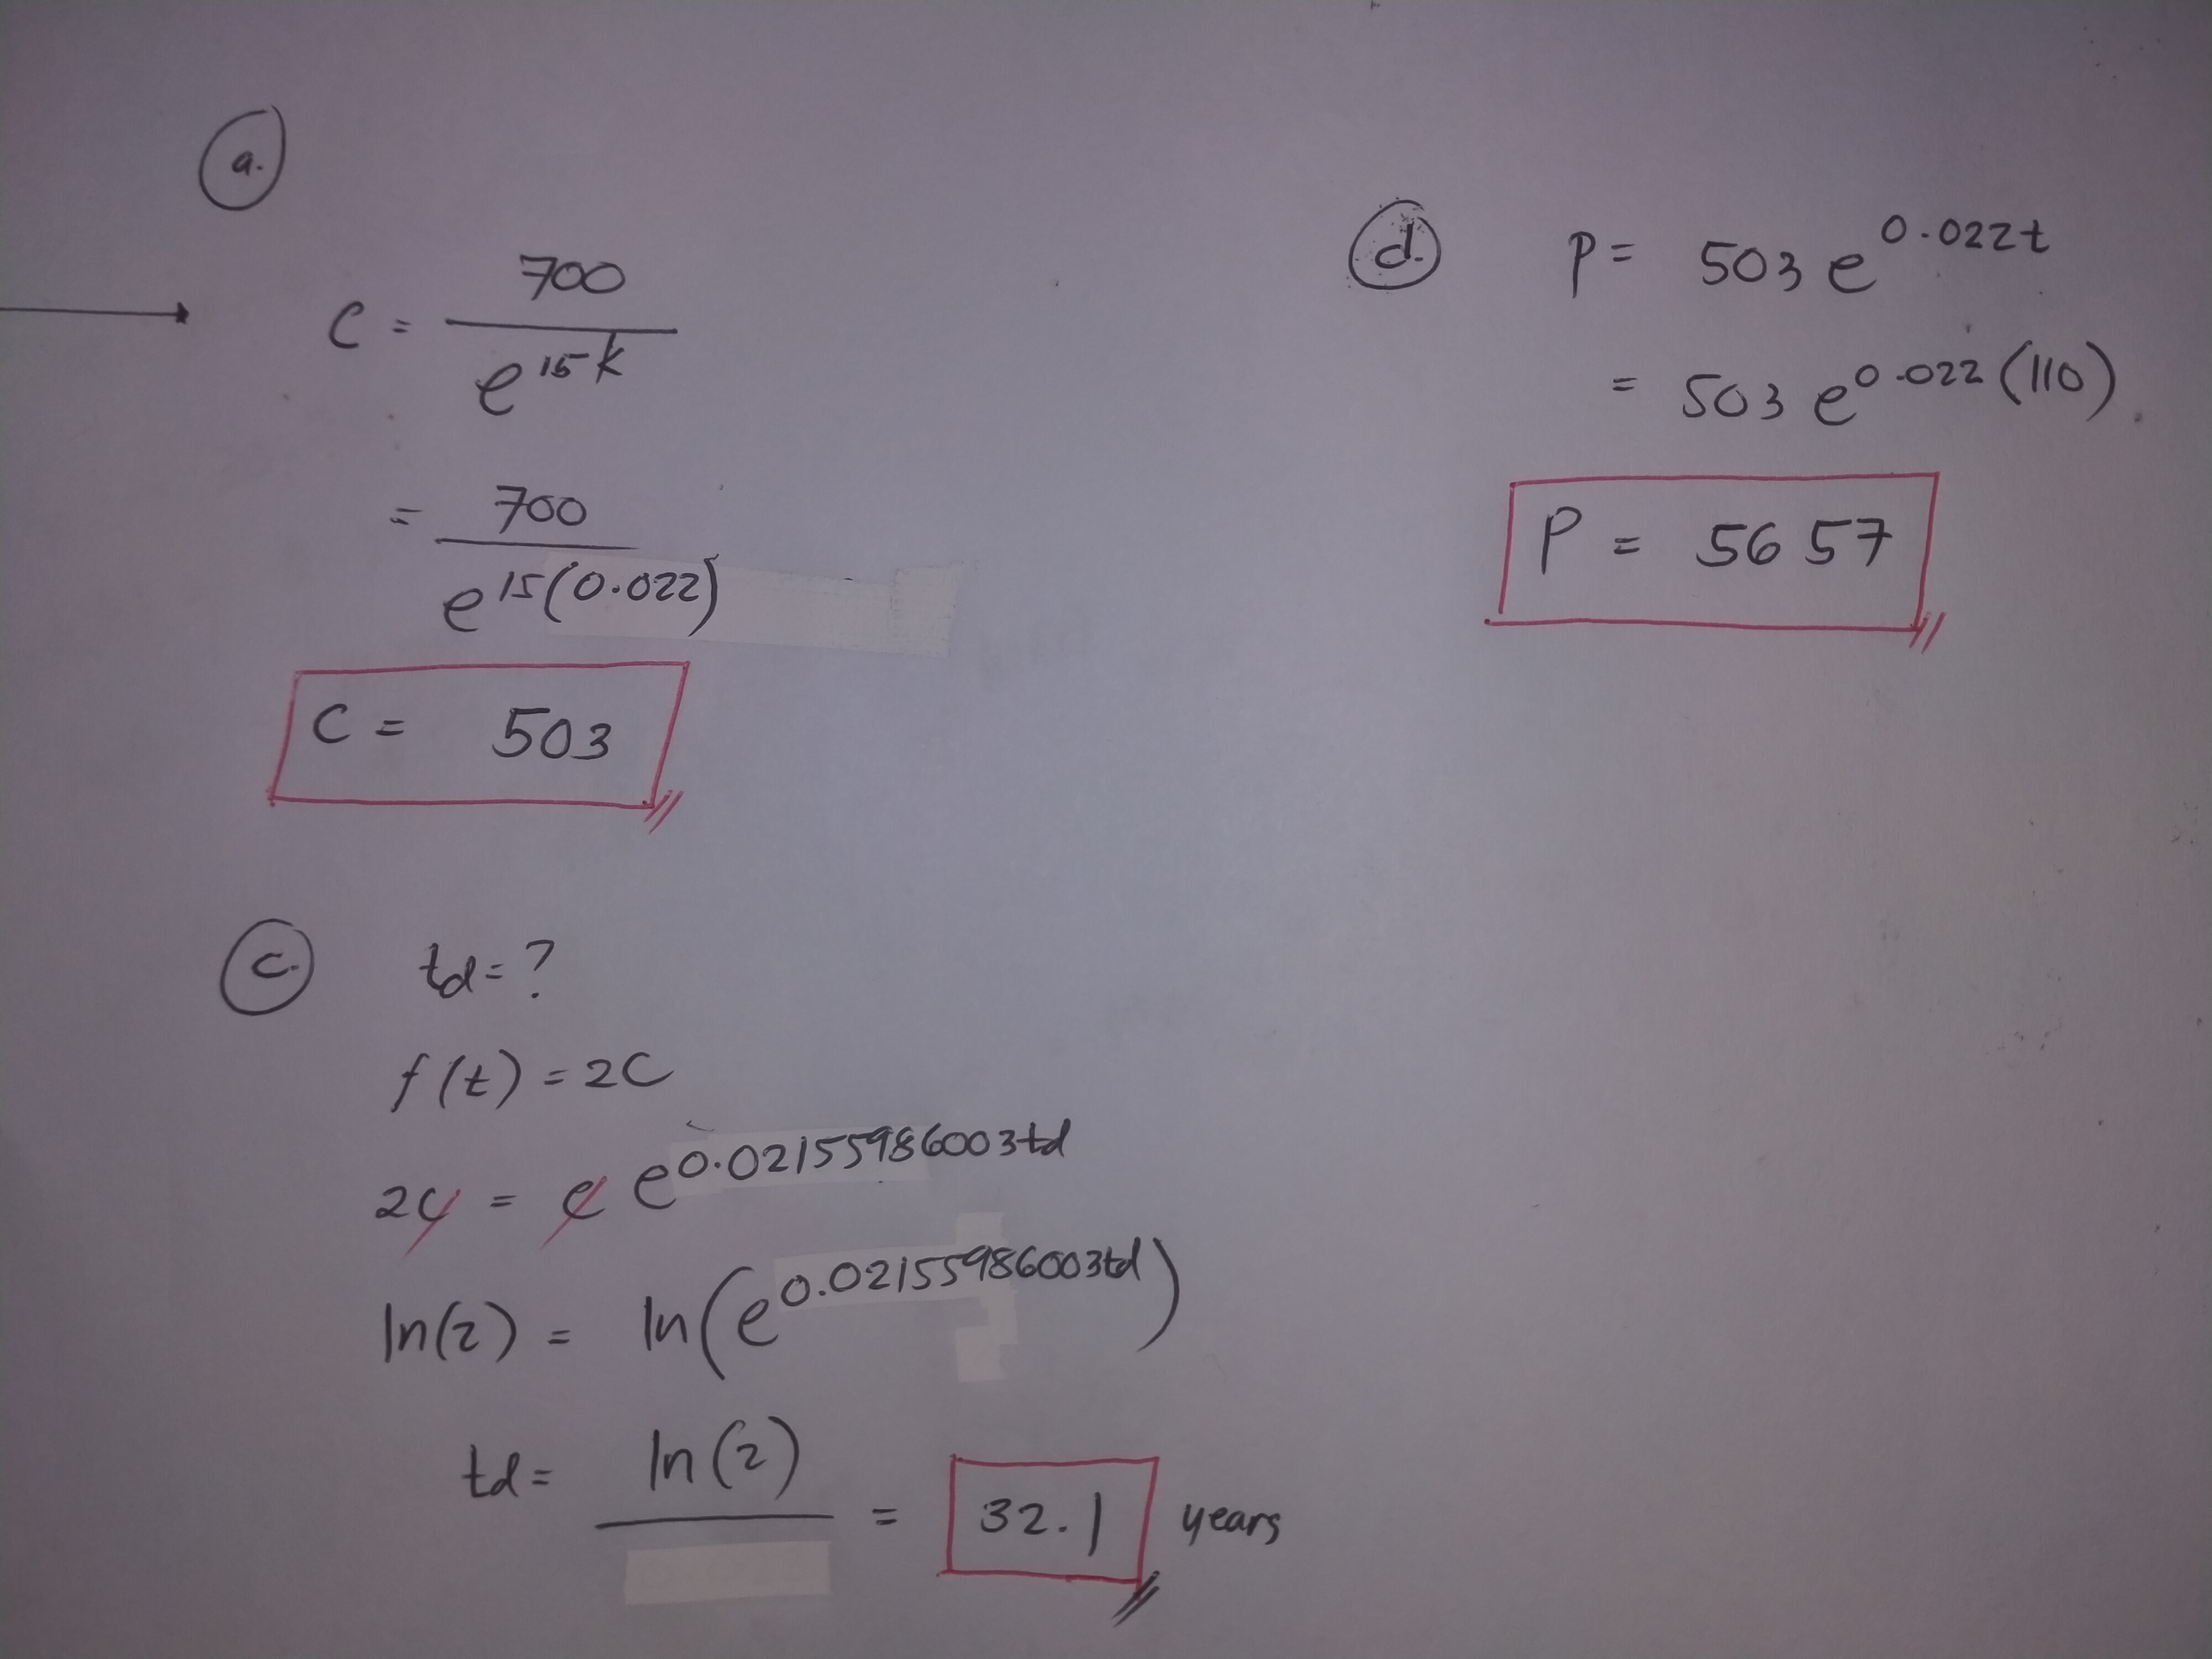 a.
C = 700 / e^15k
= 700 / e^15(0.022)
C = 503
c. td = ?
f(t) = 2C
2C = C e^0.02155986003td
ln(2) = ln(e^0.02155986003td)
td = ln(2) / = 32.1 years
d. P = 503 e^0.022t
= 503 e^0.022(110)
P = 5657